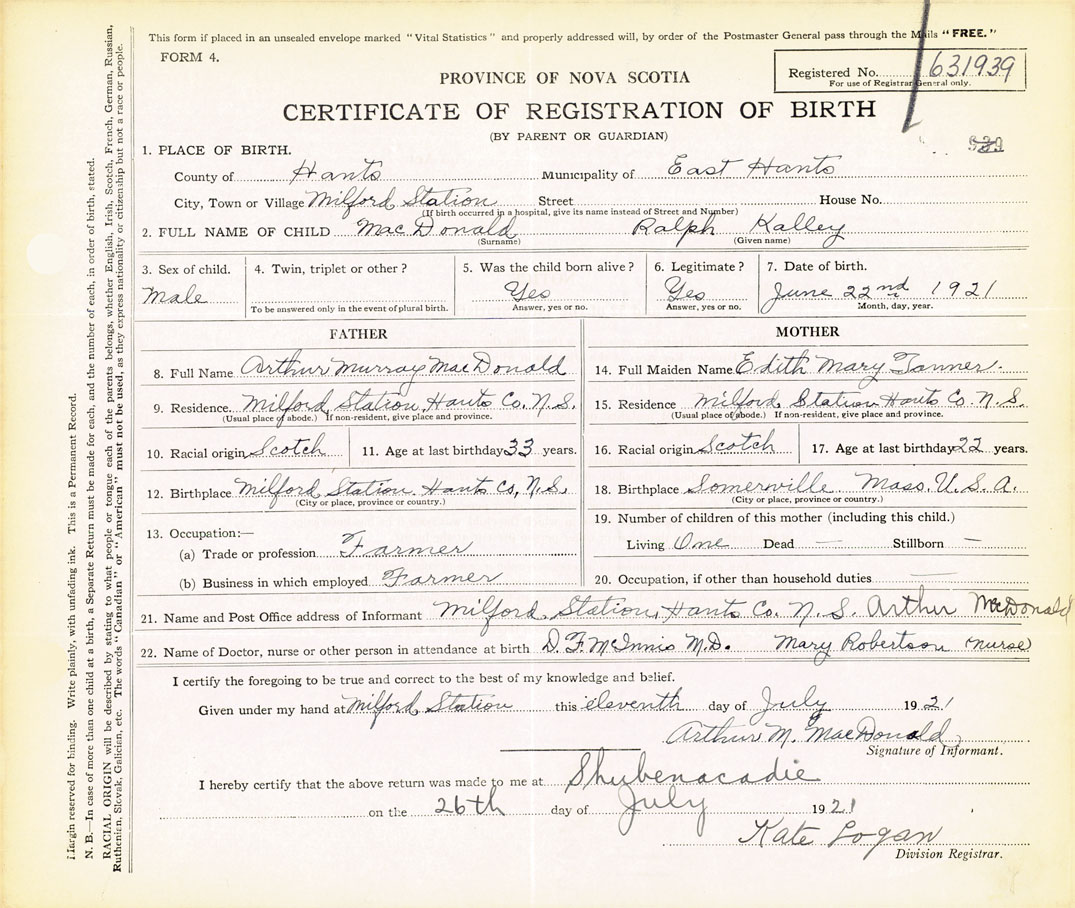 This form if placed in an unsealed envelope marked "Vital Statistics" and properly addressed will, by order of the Postmaster General pass through the Mails "FREE."
FORM 4.
Registered No. 631939
For use of Registrar General only.
PROVINCE OF NOVA SCOTIA
CERTIFICATE OF REGISTRATION OF BIRTH
(BY PARENT OR GUARDIAN)
1. PLACE OF BIRTH.
County of Hants Municipality of East Hants
City, Town or Village Milford Station Street House No.
(If birth occurred in a hospital, give its name instead of Street and Number)
2. FULL NAME OF CHILD MacDonald Ralph Kalley
(Surname) (Given name)
3. Sex of child. 4. Twin, triplet or other? 5. Was the child born alive? 6. Legitimate? 7. Date of birth.
Male Yes Yes June 22nd 1921
To be answered only in the event of plural birth. Answer, yes or no. Answer, yes or no. Month, day, year.
FATHER
8. Full Name Arthur Murray MacDonald
9. Residence. Milford Station, Hants Co. N.S.
(Usual place of abode.) If non-resident, give place and province.
10. Racial origin Scotch 11. Age at last birthday 33 years.
12. Birthplace Milford Station. Hants Co, N.S.
(City or place, province or country.)
13. Occupation:—
(a) Trade or profession Farmer
(b) Business in which employed Farmer
MOTHER
14. Full Maiden Name Edith Mary Tanner.
15. Residence Milford Station Hants Co. N.S.
(Usual place of abode.) If non-resident, give place and province.
16. Racial origin Scotch 17. Age at last birthday 22 years.
18. Birthplace Somerville Mass. U.S.A.
(City or place, province or country.)
19. Number of children of this mother (including this child.)
Living One Dead — Stillborn —
20. Occupation, if other than household duties —
21. Name and Post Office address of Informant Milford Station, Hants Co. N.S. Arthur McDonald
22. Name of Doctor, nurse or other person in attendance at birth D. F. McInnis M.D. Mary Robertson (nurse)
I certify the foregoing to be true and correct to the best of my knowledge and belief.
Given under my hand at Milford Station this eleventh day of July 1921
Arthur M. MacDonald
Signature of Informant.
I hereby certify that the above return was made to me at Shubenacadie
on the 26th day of July 1921
Kate Logan
Division Registrar.
Margin reserved for binding. Write plainly, with unfading ink. This is a Permanent Record.
N. B.—In case of more than one child at a birth, a Separate Return must be made for each, and the number of each, in order of birth, stated.
RACIAL ORIGIN will be described by stating to what people or tongue each of the parents belongs, whether English, Irish, Scotch, French, German, Russian,
Ruthenian, Slovak, Galician, etc. The words "Canadian" or "American" must not be used, as they express nationality or citizenship but not a race or people.